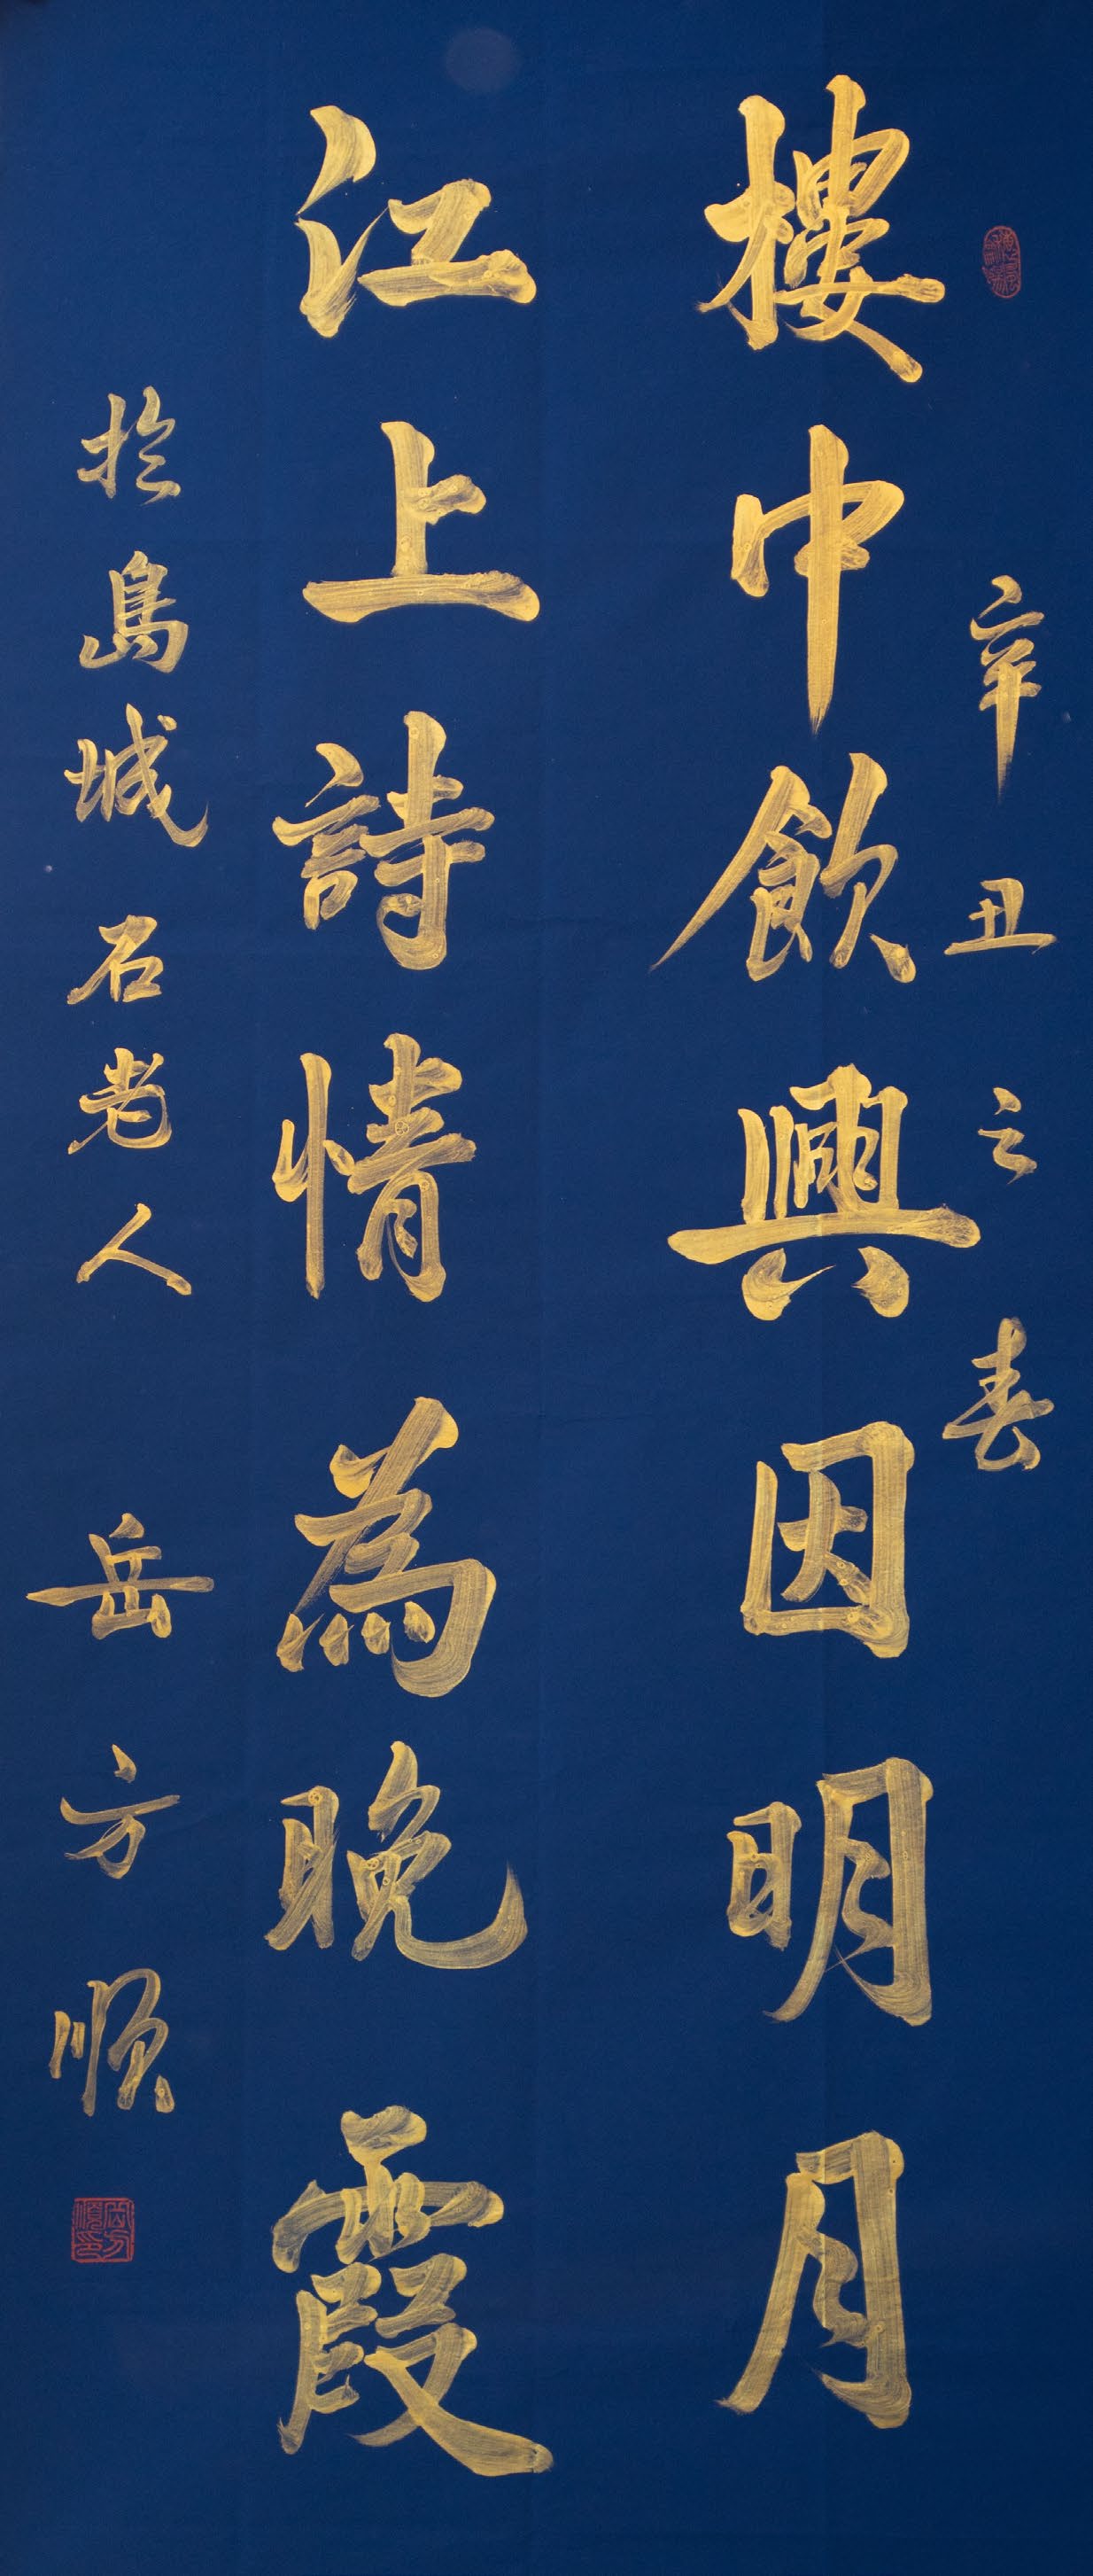 辛丑之春
樓中飲興因明月
江上詩情為晚霞
於島城石老人 岳方順